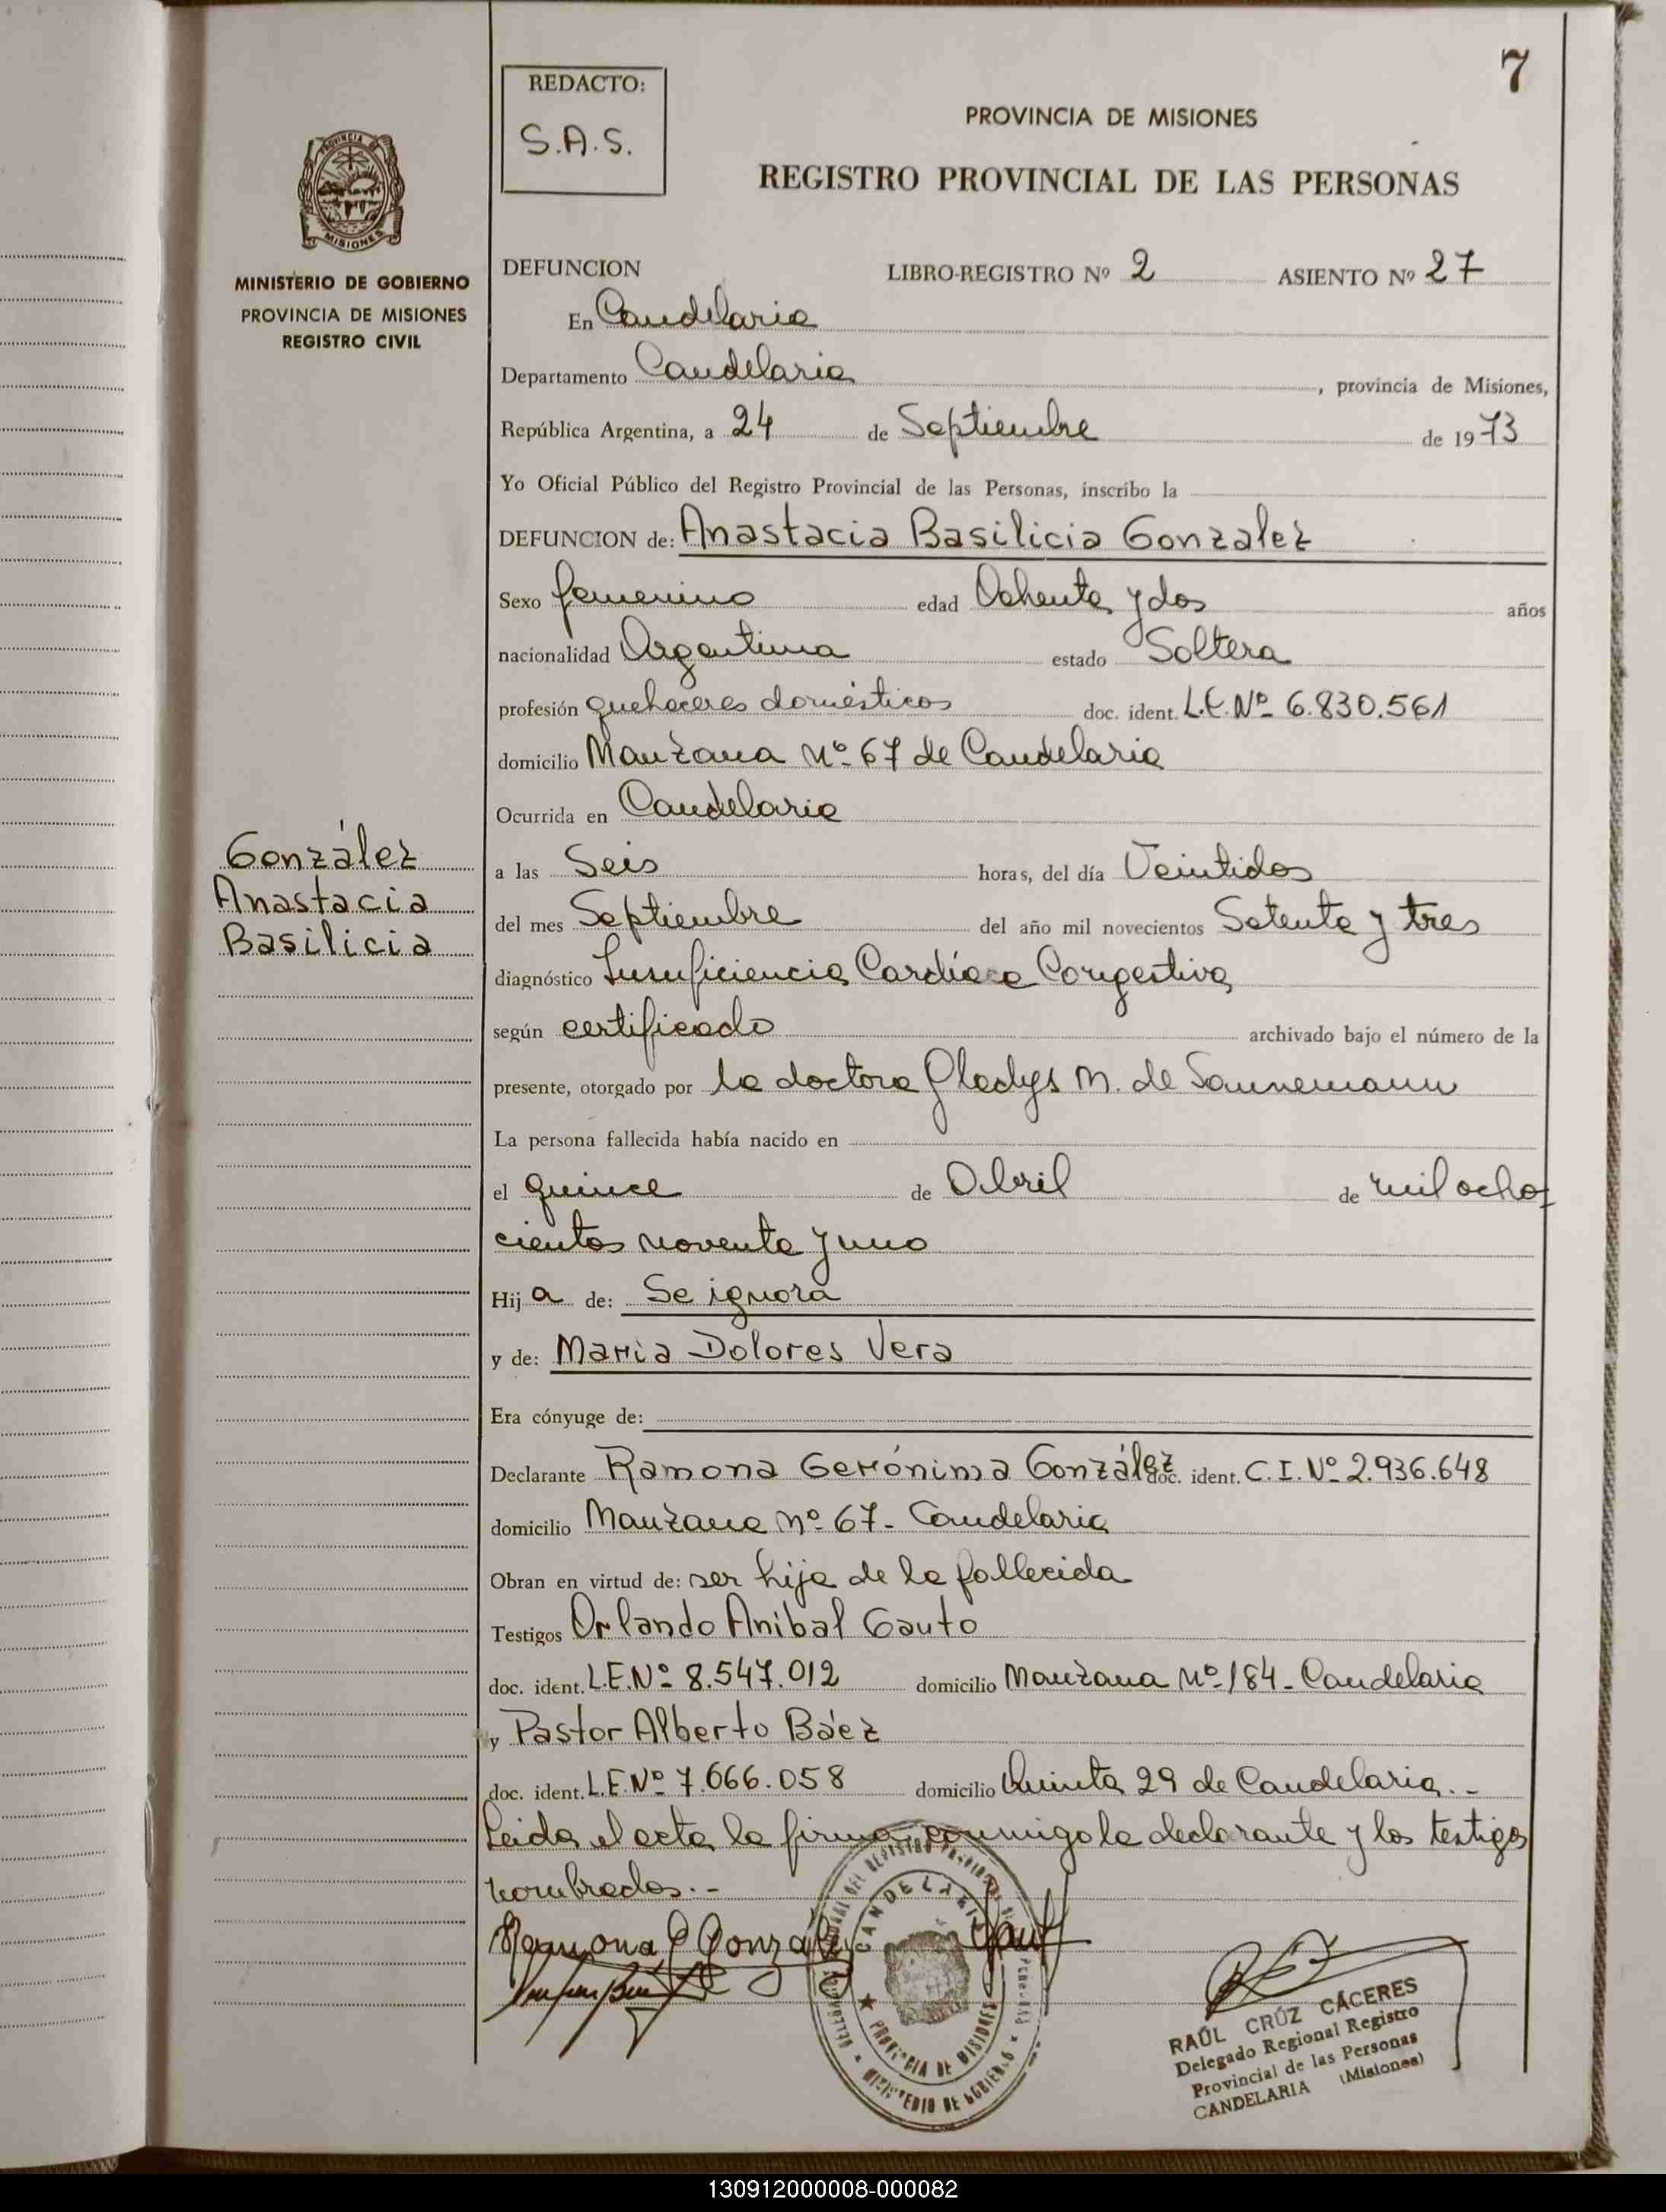 7
REDACTO:
S.A.S.
PROVINCIA DE MISIONES
REGISTRO PROVINCIAL DE LAS PERSONAS
PROVINCIA DE
MISIONES
MINISTERIO DE GOBIERNO
PROVINCIA DE MISIONES
REGISTRO CIVIL
DEFUNCION LIBRO-REGISTRO Nº 2 ASIENTO Nº 27
En Candelaria
Departamento Candelaria, provincia de Misiones,
República Argentina, a 24 de Septiembre de 1973
Yo Oficial Público del Registro Provincial de las Personas, inscribo la
DEFUNCION de: Anastacia Basilicia Gonzalez
Sexo femenino edad Ochenta y dos años
nacionalidad Argentina estado Soltera
profesión quehaceres domésticos doc. ident. L.C. Nº 6.830.561
domicilio Manzana Nº 67 de Candelaria
Ocurrida en Candelaria
González
Anastacia
Basilicia
a las Seis horas, del día Veintidos
del mes Septiembre del año mil novecientos Setenta y tres
diagnóstico Insuficiencia Cardíaca Congestiva
según certificado archivado bajo el número de la
presente, otorgado por la doctora Gladys M. de Sannemann
La persona fallecida había nacido en
el quince de Abril de mil ocho-
cientos noventa y uno
Hij a de: Se ignora
y de: Maria Dolores Vera
Era cónyuge de:
Declarante Ramona Gerónima González doc. ident. C.I. Nº 2.936.648
domicilio Manzana Nº 67- Candelaria
Obran en virtud de: ser hija de la fallecida
Testigos Orlando Anibal Gauto
doc. ident. L.E. Nº 8.547.012 domicilio Manzana Nº 184- Candelaria
y Pastor Alberto Báez
doc. ident. L.E. Nº 7.666.058 domicilio Quinta 29 de Candelaria.-
Leida el acta la firma conmigo la declarante y los testigos
nombrados.-
Ramona G González
CANDELARIA
PROVINCIA DE MISIONES
MINISTERIO DE GOBIERNO
RAÚL CRÚZ CÁCERES
Delegado Regional Registro
Provincial de las Personas
CANDELARIA (Misiones)
130912000008-000082